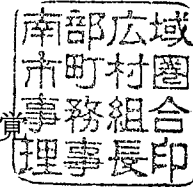 南部広域
市町村圏
事務組合
理事長印